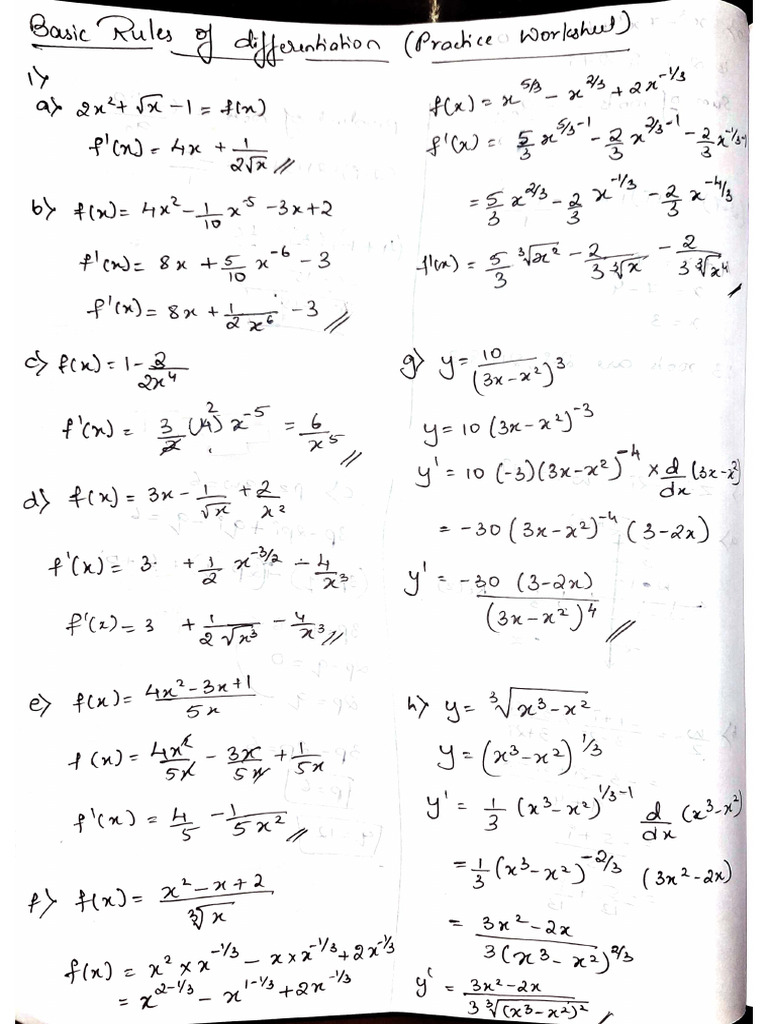 Basic Rules of differentiation (Practice Worksheet)
1)
a) 2x² + √x - 1 = f(x)
f'(x) = 4x + 1/(2√x) //
b) f(x) = 4x² - 1/10 x⁻⁵ - 3x + 2
f'(x) = 8x + 5/10 x⁻⁶ - 3
f'(x) = 8x + 1/(2x⁶) - 3 //
c) f(x) = 1 - 3/(2x⁴)
f'(x) = 3/2 (4) x⁻⁵ = 6/x⁵ //
d) f(x) = 3x - 1/√x + 2/x²
f'(x) = 3 + 1/2 x^(-3/2) - 4/x³
f'(x) = 3 + 1/(2√x³) - 4/x³ //
e) f(x) = (4x² - 3x + 1)/5x
f(x) = 4x²/5x - 3x/5x + 1/5x
f'(x) = 4/5 - 1/(5x²) //
f) f(x) = (x² - x + 2)/∛x
f(x) = x² × x^(-1/3) - x × x^(-1/3) + 2x^(-1/3)
= x^(2-1/3) - x^(1-1/3) + 2x^(-1/3)
f(x) = x^(5/3) - x^(2/3) + 2x^(-1/3)
f'(x) = 5/3 x^(5/3-1) - 2/3 x^(2/3-1) - 2/3 x^(-1/3-1)
= 5/3 x^(2/3) - 2/3 x^(-1/3) - 2/3 x^(-4/3)
f'(x) = 5/3 ∛x² - 2/(3∛x) - 2/(3∛x⁴) //
g) y = 10/(3x - x²)³
y = 10 (3x - x²)⁻³
y' = 10 (-3)(3x - x²)⁻⁴ × d/dx (3x - x²)
= -30 (3x - x²)⁻⁴ (3 - 2x)
y' = -30 (3 - 2x)/(3x - x²)⁴ //
h) y = ∛(x³ - x²)
y = (x³ - x²)^(1/3)
y' = 1/3 (x³ - x²)^(1/3-1) d/dx (x³ - x²)
= 1/3 (x³ - x²)^(-2/3) (3x² - 2x)
= (3x² - 2x)/(3(x³ - x²)^(2/3))
y' = (3x² - 2x)/(3∛(x³ - x²)²) //